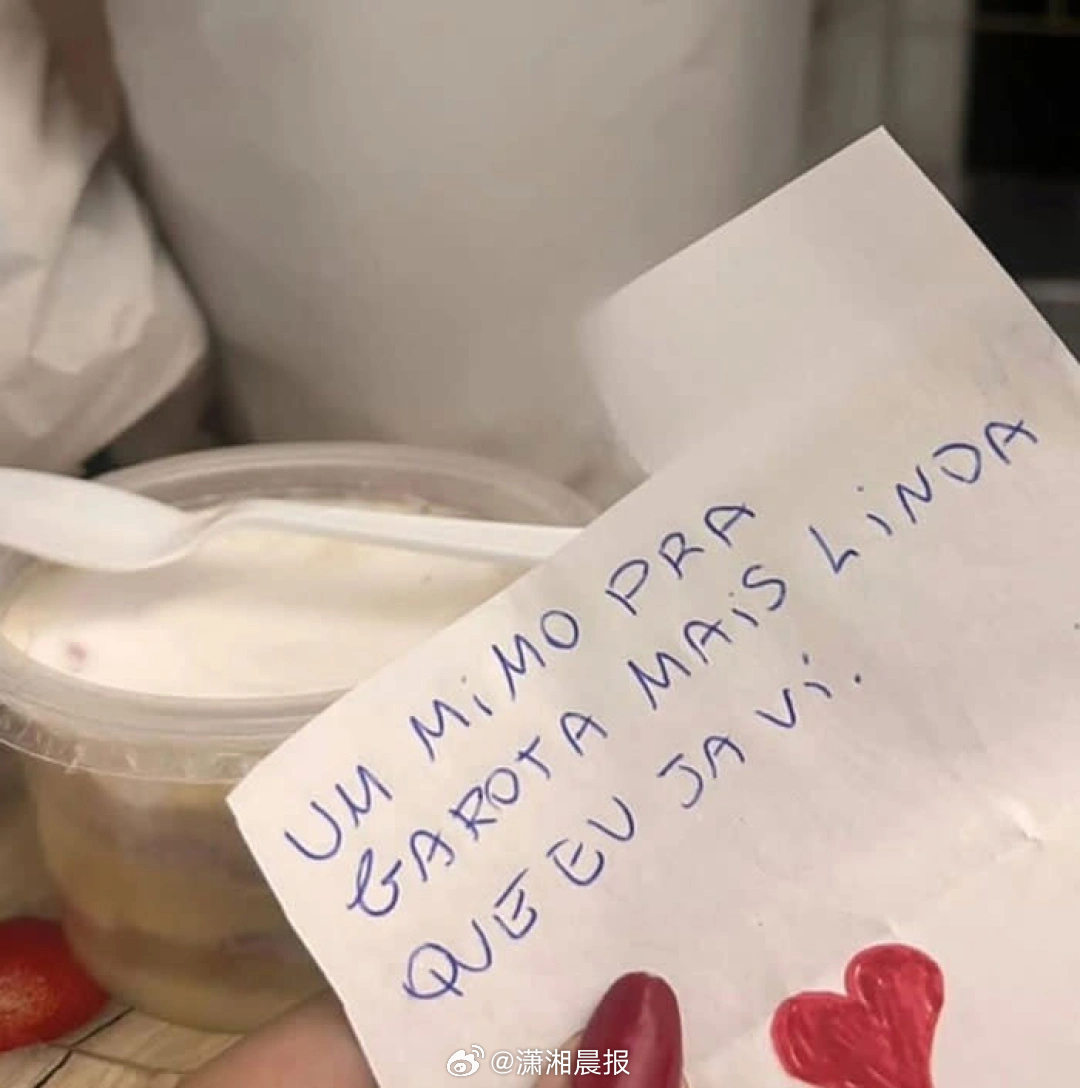 UM MiMO PRA
GAROTA MAiS LiNDA
QUE EU JA Vi.
@潇湘晨报